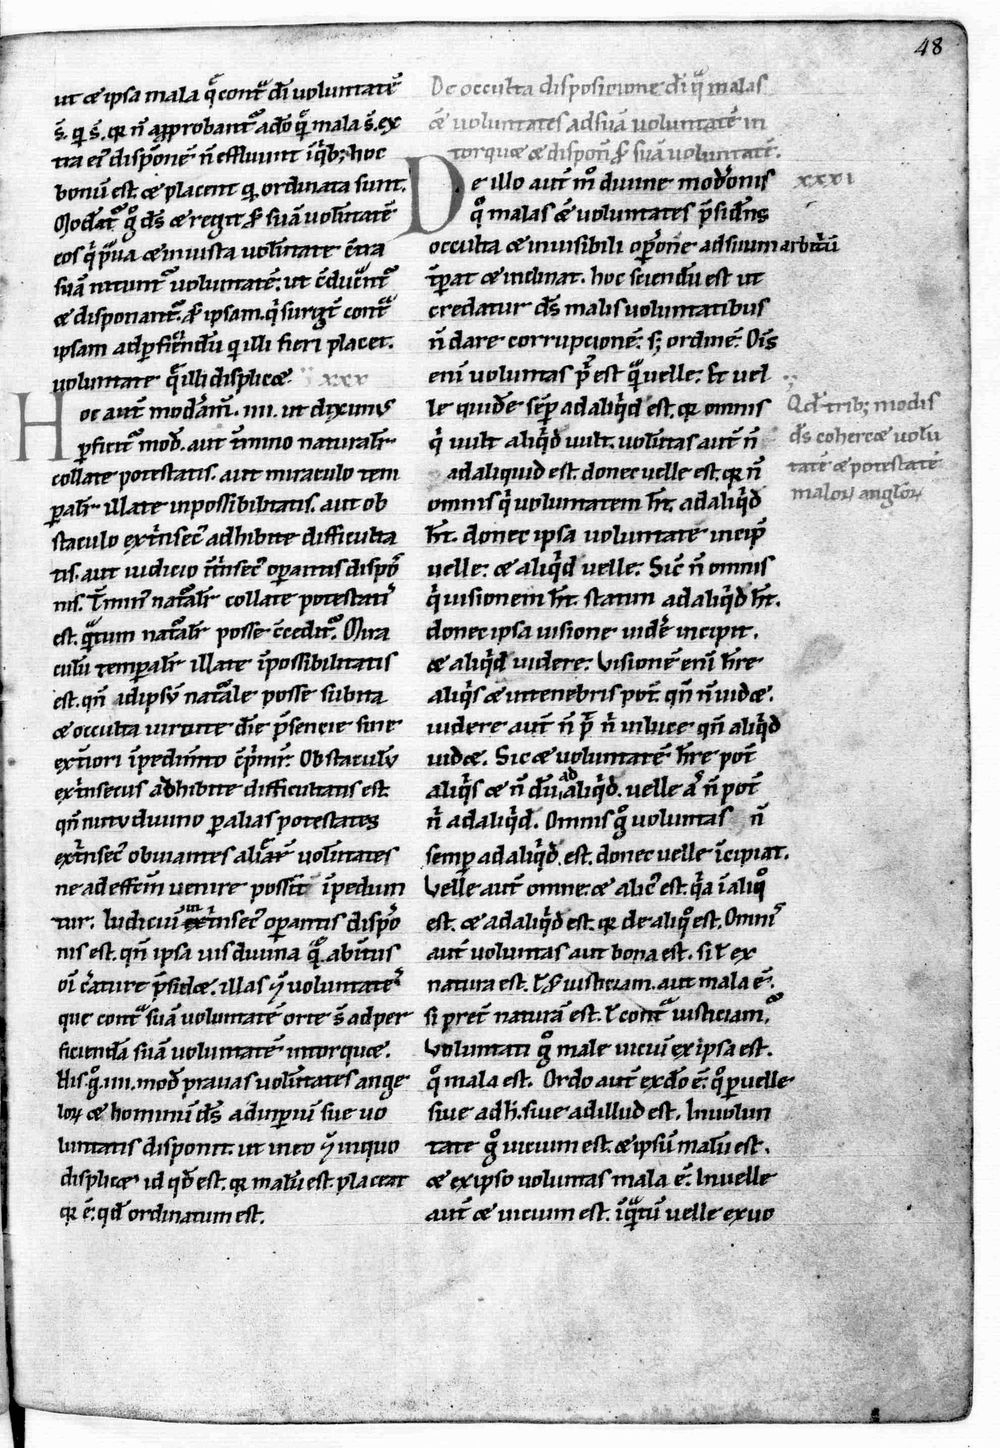 48
ut & ipsa mala q̄ contͣ dī uoluntatē
s̄. q̨ s̄. qr n̄ approbantᷣ a dō qͣ mala s̄. ex
tra ei᷒ disp̄onē n̄ effluunt īqͥb; hoc
bonū est. & placent q̨ ordinata sunt.
Modatᷣ gͦ ds̄ & regit ꝑ suā uolūtatē
eos qͥ praua & iniusta uolūtate c̄tra
suā nitunt᷑ uoluntatē: ut c̄duc̄nt᷑
& disponant᷑. ꝑ ipsam. qͥ surgt̄ contͣ
ipsam ad ꝑficiendū q illi fieri placet.
uoluntate qͣ illi displic&. xxx
Hoc aut̄ mod̄am̄. iiii. ut diximus
ꝑficit᷑ mod̄. aut t̄mino naturalit̄
collate potestatis. aut miraculo tem
poralit̄ illate inpossibilitatis. aut ob
staculo ext̄insec᷒ adhibite difficulta
tis. aut iudicio int̄insec᷒ oꝑantis disp̄o
nis. T̄min᷒ nat᷑alit̄ collate potestatis
est. qͣntum nat᷑alit̄ posse c̄cedit᷑. Mira
culū temporalit̄ illate īpossibilitatis
est. qn̄ ad ipsū nat᷑ale posse subita
& occulta uirtute diuine p̄sencie sine
ext̄iori īpedim̄to c̄p̄mit᷑. Obstaculū
ext̄insecus adhibite difficultatis est.
qn̄ nutu diuino ꝑ alias potestates
ext̄insec᷒ obuiantes aliar̄ uolūtates
ne ad effect̄ū uenire possint īpediun
tur. Iudiciū int̄insec᷒ oꝑantis disp̄o
nis est. qn̄ ipsa uis diuina qͣ abint᷒
oī c̄ature p̄sid&. illas ꝫ uoluntates
que contͣ suā uoluntatē orte s̄ ad per
ficiendā suā uoluntatē intorqu&.
His gͦ. iiii. mod̄ prauas uolūtates ange
loꝝ & hominū ds̄ ad impiū siue uo
luntatis disponit. ut in eo ꝫ iniquo
displic& id qd̄ est. qr malū est. placeat
qr ē: qd̄ ordinatum est.
De occulta disposicione dī qͣ malas
& uoluntates ad suā uoluntatē in
torqu& & dispon̄ ꝑ suā uoluntatē.
De illo aut̄ mͦ diuine mod̄onis
qͦ malas & uoluntates p̄sidens
occulta & inuisibili oꝑone ad suum arbitriū
t̄perat & inclinat. hoc sciendū est ut
credatur ds̄ malis uoluntatibus
n̄ dare corrupcionē: s; ordinē. Om̄s
enī uoluntas p̄ est qͣ uelle: Et uel
le quidē semꝑ ad aliqͥd est. qr omnis
qͥ uult aliqͥd uult. uolūtas aut̄ n̄
ad aliquid est. donec uelle est. qr n̄
omnis qͥ uoluntatem ht̄. ad aliqͥd
ht̄. donec ipsa uoluntate incip̄
uelle: & aliqͥd uelle: Sic᷒ n̄ omnis
qͥ uisionem ht̄. statim ad aliqͥd ht̄.
donec ipsa uisione uidē incipit.
& aliqͥd uidere: Visionē enī h̄re
aliqͥs & in tenebris pot̄. qn̄ n̄ uid&.
uidere aut̄ n̄ p̄ nͥ in luce qn̄ aliqͥd
uid&. Sic & uoluntatē h̄re pot̄
aliqͥs & n̄ dū ad aliqͥd. uelle aͭ n̄ pot̄
nͥ ad aliqͥd. Omnis gͦ uoluntas n̄
semꝑ ad aliqͥd est. donec uelle īcipiat.
Velle aut̄ omne: & alic᷒ est. qͥa ī aliqͦ
est. & ad aliqͥd est. qr de aliqͦ est. Omnis
aut̄ uoluntas aut bona est. si ł ex
natura est. ł ꝑ iusticiam. aut mala ē.
si pret̄ naturā est. ł contͣ iusticiam.
Voluntati gͦ male uiciū ex ipsa est.
qͦ mala est. Ordo aut̄ ex dō ē: qͦ ꝑ uelle
siue ad h̄. siue ad illud est. In uolun
tate gͦ uicium est. & ipsū malū est.
& ex ipso uoluntas mala ē. In uelle
aut̄ & uicium est. īqͣntū uelle ex uo
xxxi
Qd̄ trib; modis
ds̄ coherc& uolū
tatē & potestatē
maloꝝ angloꝝ